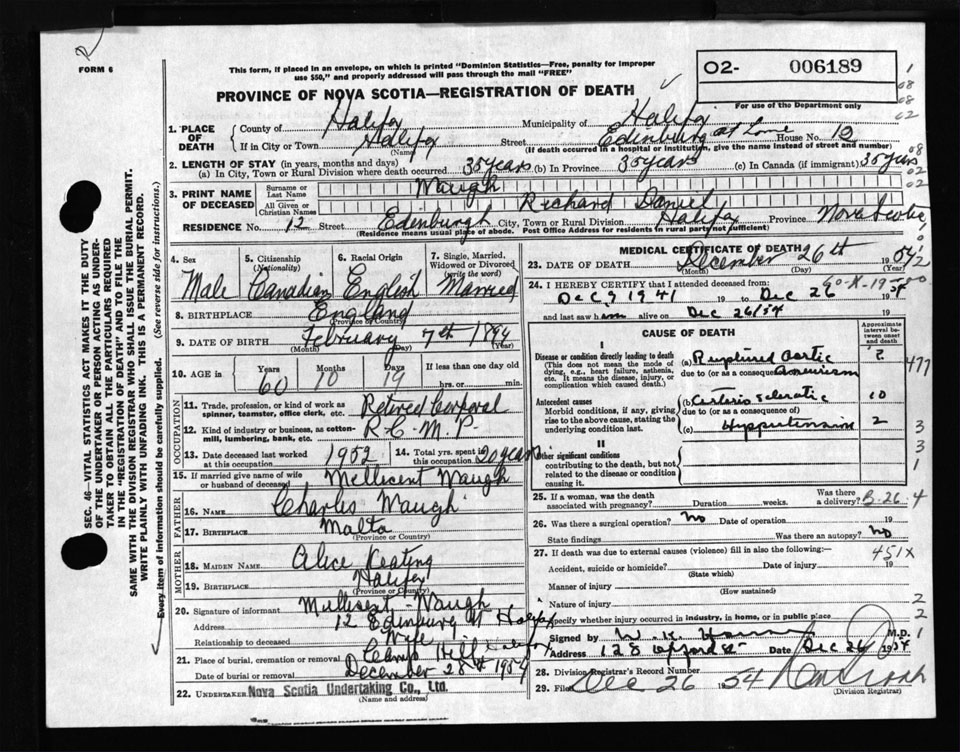 2
FORM 6
This form, if placed in an envelope, on which is printed "Dominion Statistics—Free, penalty for improper
use $50," and properly addressed will pass through the mail "FREE"
PROVINCE OF NOVA SCOTIA—REGISTRATION OF DEATH
O2- 006189
For use of the Department only
1. PLACE OF DEATH
County of Halifax Municipality of Halifax
If in City or Town Halifax (Name) Street Edinburg at home House No. 12
(If death occurred in a hospital or institution, give the name instead of street and number)
2. LENGTH OF STAY (in years, months and days)
(a) In City, Town or Rural Division where death occurred 35 years (b) In Province 35 years (c) In Canada (if immigrant) 35 years
3. PRINT NAME OF DECEASED
Surname or Last Name Waugh
All Given or Christian Names Richard Daniel
RESIDENCE No. 12 Street Edinburgh City, Town or Rural Division Halifax Province Nova Scotia
(Residence means usual place of abode. Post Office Address for residents in rural parts not sufficient)
4. Sex Male
5. Citizenship (Nationality) Canadian
6. Racial Origin English
7. Single, Married, Widowed or Divorced (write the word) Married
8. BIRTHPLACE England
(Province or Country)
9. DATE OF BIRTH February 7th 1894
(Month) (Day) (Year)
10. AGE in Years 60 Months 10 Days 19 If less than one day old
hrs. or min.
OCCUPATION
11. Trade, profession or kind of work as spinner, teamster, office clerk, etc. Retired Corporal
12. Kind of industry or business, as cotton-mill, lumbering, bank, etc. R.C.M.P.
13. Date deceased last worked at this occupation 1952
14. Total yrs. spent in this occupation 20 years
15. If married give name of wife or husband of deceased Mellicent Waugh
FATHER
16. NAME Charles Waugh
17. BIRTHPLACE Malta
(Province or Country)
MOTHER
18. MAIDEN NAME Alice Keating
19. BIRTHPLACE Halifax
(Province or Country)
20. Signature of informant Millicent Waugh
Address 12 Edinburg St Halifax
Relationship to deceased Wife
21. Place of burial, cremation or removal Camp Hill Halifax
Date of burial or removal December 28th 1954
22. UNDERTAKER Nova Scotia Undertaking Co., Ltd.
(Name and address)
MEDICAL CERTIFICATE OF DEATH
23. DATE OF DEATH December 26th 1954
(Month) (Day) (Year)
24. I HEREBY CERTIFY that I attended deceased from:
Dec 9 1941 19 to Dec 26 1954
and last saw him alive on Dec 26/54
CAUSE OF DEATH
Approximate interval between onset and death
I
Disease or condition directly leading to death
(This does not mean the mode of dying, e.g., heart failure, asthenia, etc. It means the disease, injury, or complication which caused death.)
(a) Ruptured Aortic 2
due to (or as a consequence of) Aneurism
477
Antecedent causes
Morbid conditions, if any, giving rise to the above cause, stating the underlying condition last.
(b) Arterio Sclerotic 10
due to (or as a consequence of)
(c) Hypertension 2
3
II
Other significant conditions
contributing to the death, but not related to the disease or condition causing it.
3
1
25. If a woman, was the death associated with pregnancy? Duration weeks. Was there a delivery? B-26 4
26. Was there a surgical operation? No Date of operation 19
State findings Was there an autopsy? No
27. If death was due to external causes (violence) fill in also the following:—
451X
Accident, suicide or homicide? Date of injury 19
(State which)
Manner of injury
(How sustained)
Nature of injury 2
Specify whether injury occurred in industry, in home, or in public place 2
Signed by M.D. 1
Address 128 Oxford St Date Dec 26 1954
28. Division Registrar's Record Number
29. Filed Dec 26 1954
(Division Registrar)
SEC. 46—VITAL STATISTICS ACT MAKES IT THE DUTY
OF THE UNDERTAKER OR PERSON ACTING AS UNDER-
TAKER TO OBTAIN ALL THE PARTICULARS REQUIRED
IN THE "REGISTRATION OF DEATH" AND TO FILE THE
SAME WITH THE DIVISION REGISTRAR WHO SHALL ISSUE THE BURIAL PERMIT.
WRITE PLAINLY WITH UNFADING INK. THIS IS A PERMANENT RECORD.
Every item of information should be carefully supplied. (See reverse side for instructions.)